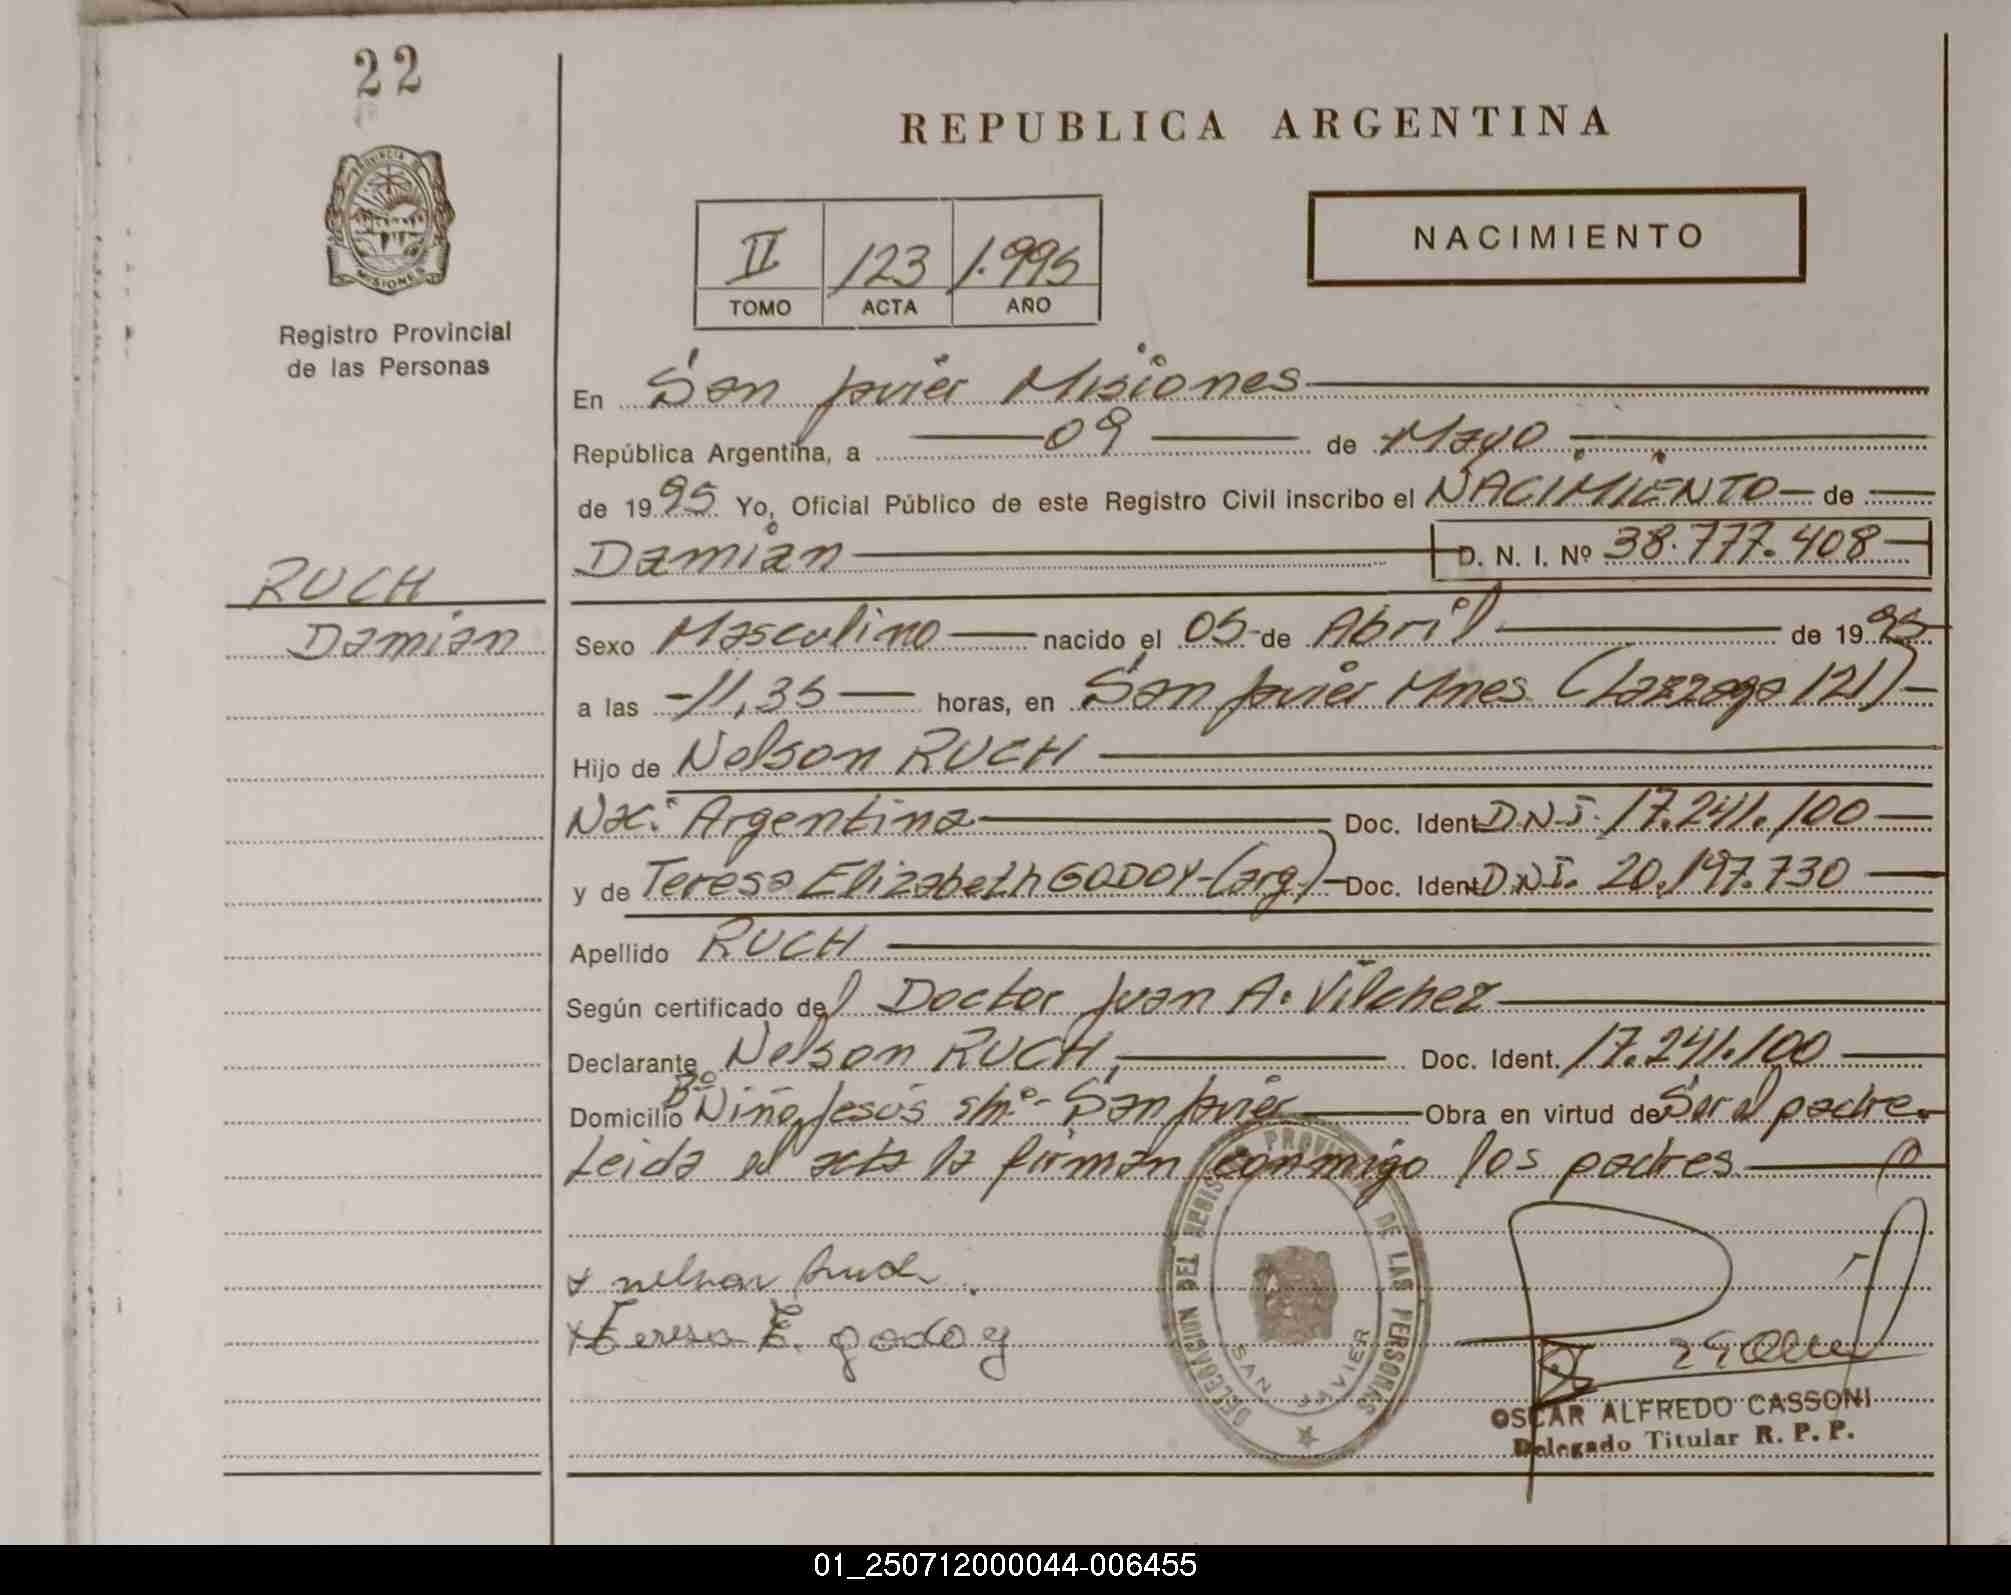 22
PROVINCIA DE
MISIONES
Registro Provincial
de las Personas
RUCH
Damián
REPUBLICA ARGENTINA
NACIMIENTO
II 123 1.995
TOMO ACTA AÑO
En San Javier Misiones
República Argentina, a 09 de Mayo
de 1995 Yo, Oficial Público de este Registro Civil inscribo el NACIMIENTO de
Damián D. N. I. Nº 38.777.408
Sexo Masculino nacido el 05 de Abril de 1995
a las 11,35 horas, en San Javier Mnes (Lazzaga 121)
Hijo de Nelson RUCH
Nac: Argentina Doc. Ident D.N.I. 17.241.100
y de Teresa Elizabeth GODOY (arg.) Doc. Ident D.N.I. 20.197.730
Apellido RUCH
Según certificado del Doctor Juan A. Vilchez
Declarante Nelson RUCH, Doc. Ident. 17.241.100
Domicilio Bº Niño Jesús s/nº San Javier Obra en virtud de Ser el padre.
Leida el acta la firman conmigo los padres
x nelson Ruch
x Teresa E. godoy
DELEGACION DEL REGISTRO PROVINCIAL DE LAS PERSONAS
SAN JAVIER
OSCAR ALFREDO CASSONI
Delegado Titular R. P. P.
01_250712000044-006455